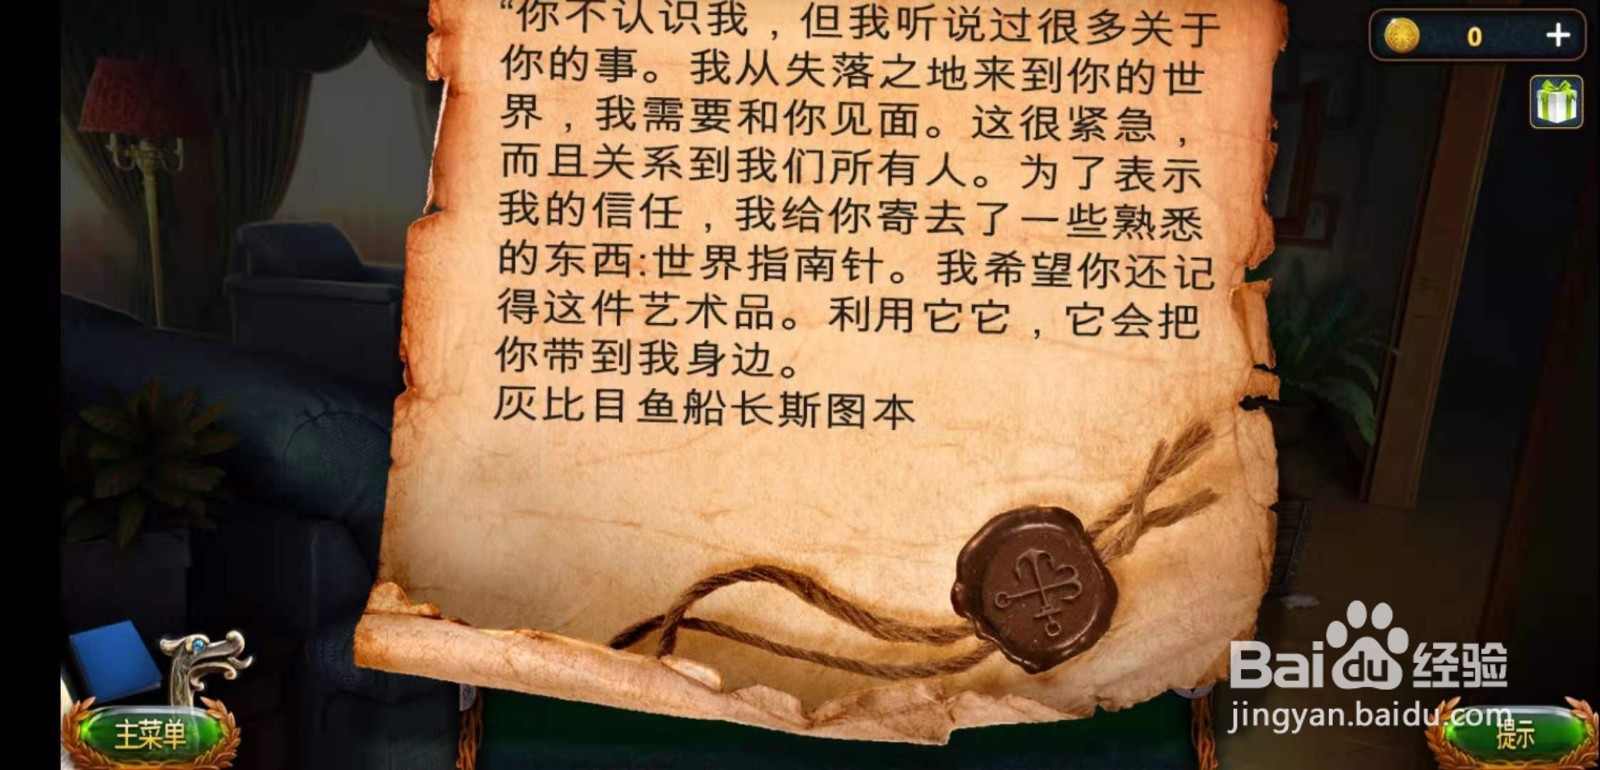 “你不认识我，但我听说过很多关于
你的事。我从失落之地来到你的世
界，我需要和你见面。这很紧急，
而且关系到我们所有人。为了表示
我的信任，我给你寄去了一些熟悉
的东西:世界指南针。我希望你还记
得这件艺术品。利用它它，它会把
你带到我身边。
灰比目鱼船长斯图本
0
主菜单
提示
Baidu经验
jingyan.baidu.com